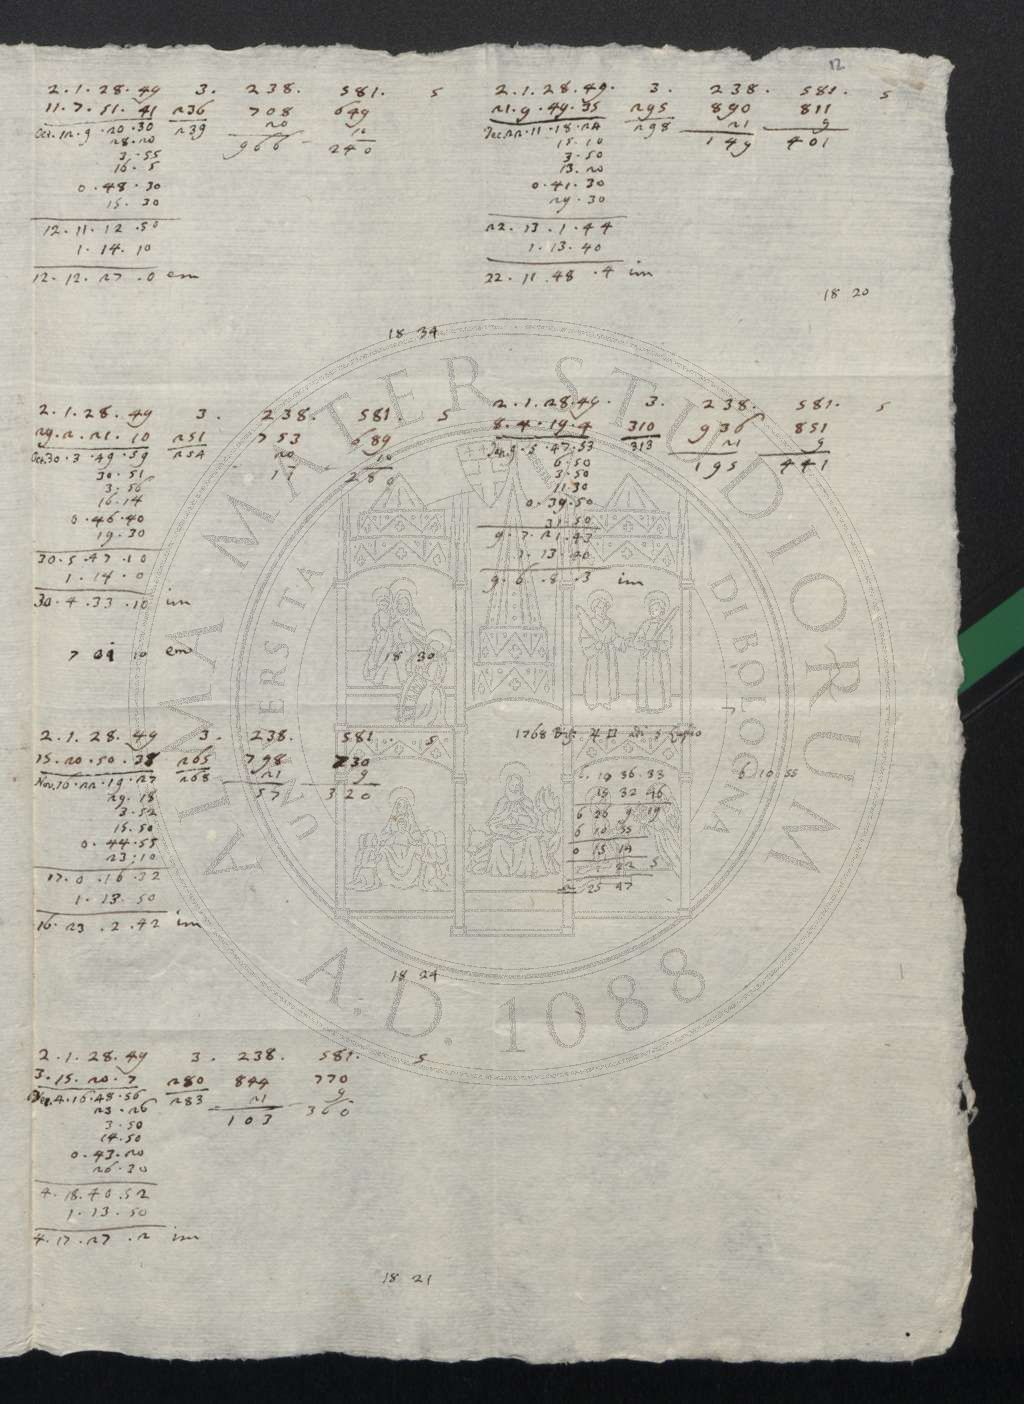 12
2.1.28.49 3. 238. 581. 5
11.7.51.41 236 708 649
Oct.12.9.20.30 239 20 10
28.20 966 240
3.55
16.5
0.48.30
15.30
12.11.12.50
1.14.10
12.12.27.0 em
18 34
2.1.28.49. 3. 238. 581. 5
21.9.49.35 295 890 811
Dec.22.11.18.24 298 21 9
15.10 149 401
3.50
13.20
0.41.30
29.30
22.13.1.44
1.13.40
22.11.48.4 im
18 20
2.1.28.49 3. 238. 581. 5
29.2.21.10 251 753 689
Oct.30.3.49.59 254 20 10
30.51 17 280
3.56
16.14
0.46.40
19.30
30.5.47.10
1.14.0
30.4.33.10 im
7 10 em
18 30
2.1.28.49. 3. 238. 581. 5
8.4.19.4 310 936 851
Jan.9.5.47.53 313 21 9
6.50 195 441
3.50
11.30
0.39.50
31.50
9.7.21.43
1.13.40
9.6.8.3 im
2.1.28.49 3. 238. 581. 5
15.20.50.38 265 798 730
Nov.16.22.19.27 268 21 9
29.18 57 320
3.52
15.50
0.44.55
23.10
17.0.16.32
1.13.50
16.23.2.42 im
18 24
1768 ♃ ♊ di 5 Luglio
19 36 33 6 10 55
19 32 46
6 26 9 19
6 10 55
0 15 14
22 5
25 47
2.1.28.49 3. 238. 581. 5
3.15.20.7 280 844 770
Dec.4.16.48.56 283 21 9
23.26 103 360
3.50
14.50
0.43.20
26.30
4.18.40.52
1.13.50
4.17.27.2 im
18 21
ALMA MATER STUDIORUM
UNIVERSITÀ DI BOLOGNA
A.D. 1088